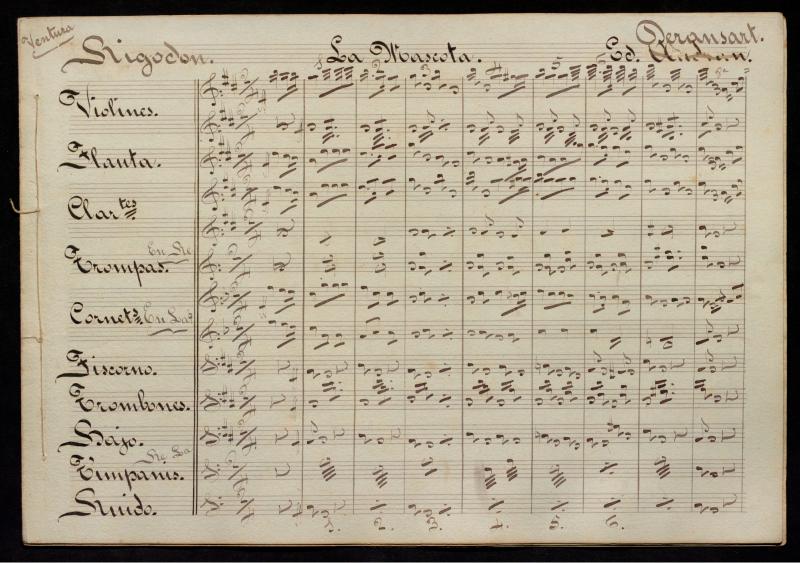 Ventura
Rigodon. La Mascota. Ed. Deransart.
Audran.
Violines.
Flauta.
Clar^tes
Trompas. En Re
Cornet^s. En La
Fiscorno.
Trombones.
Bajo.
Timpanis. Re La
Ruido.
1. 2. 3. 4. 5. 6.